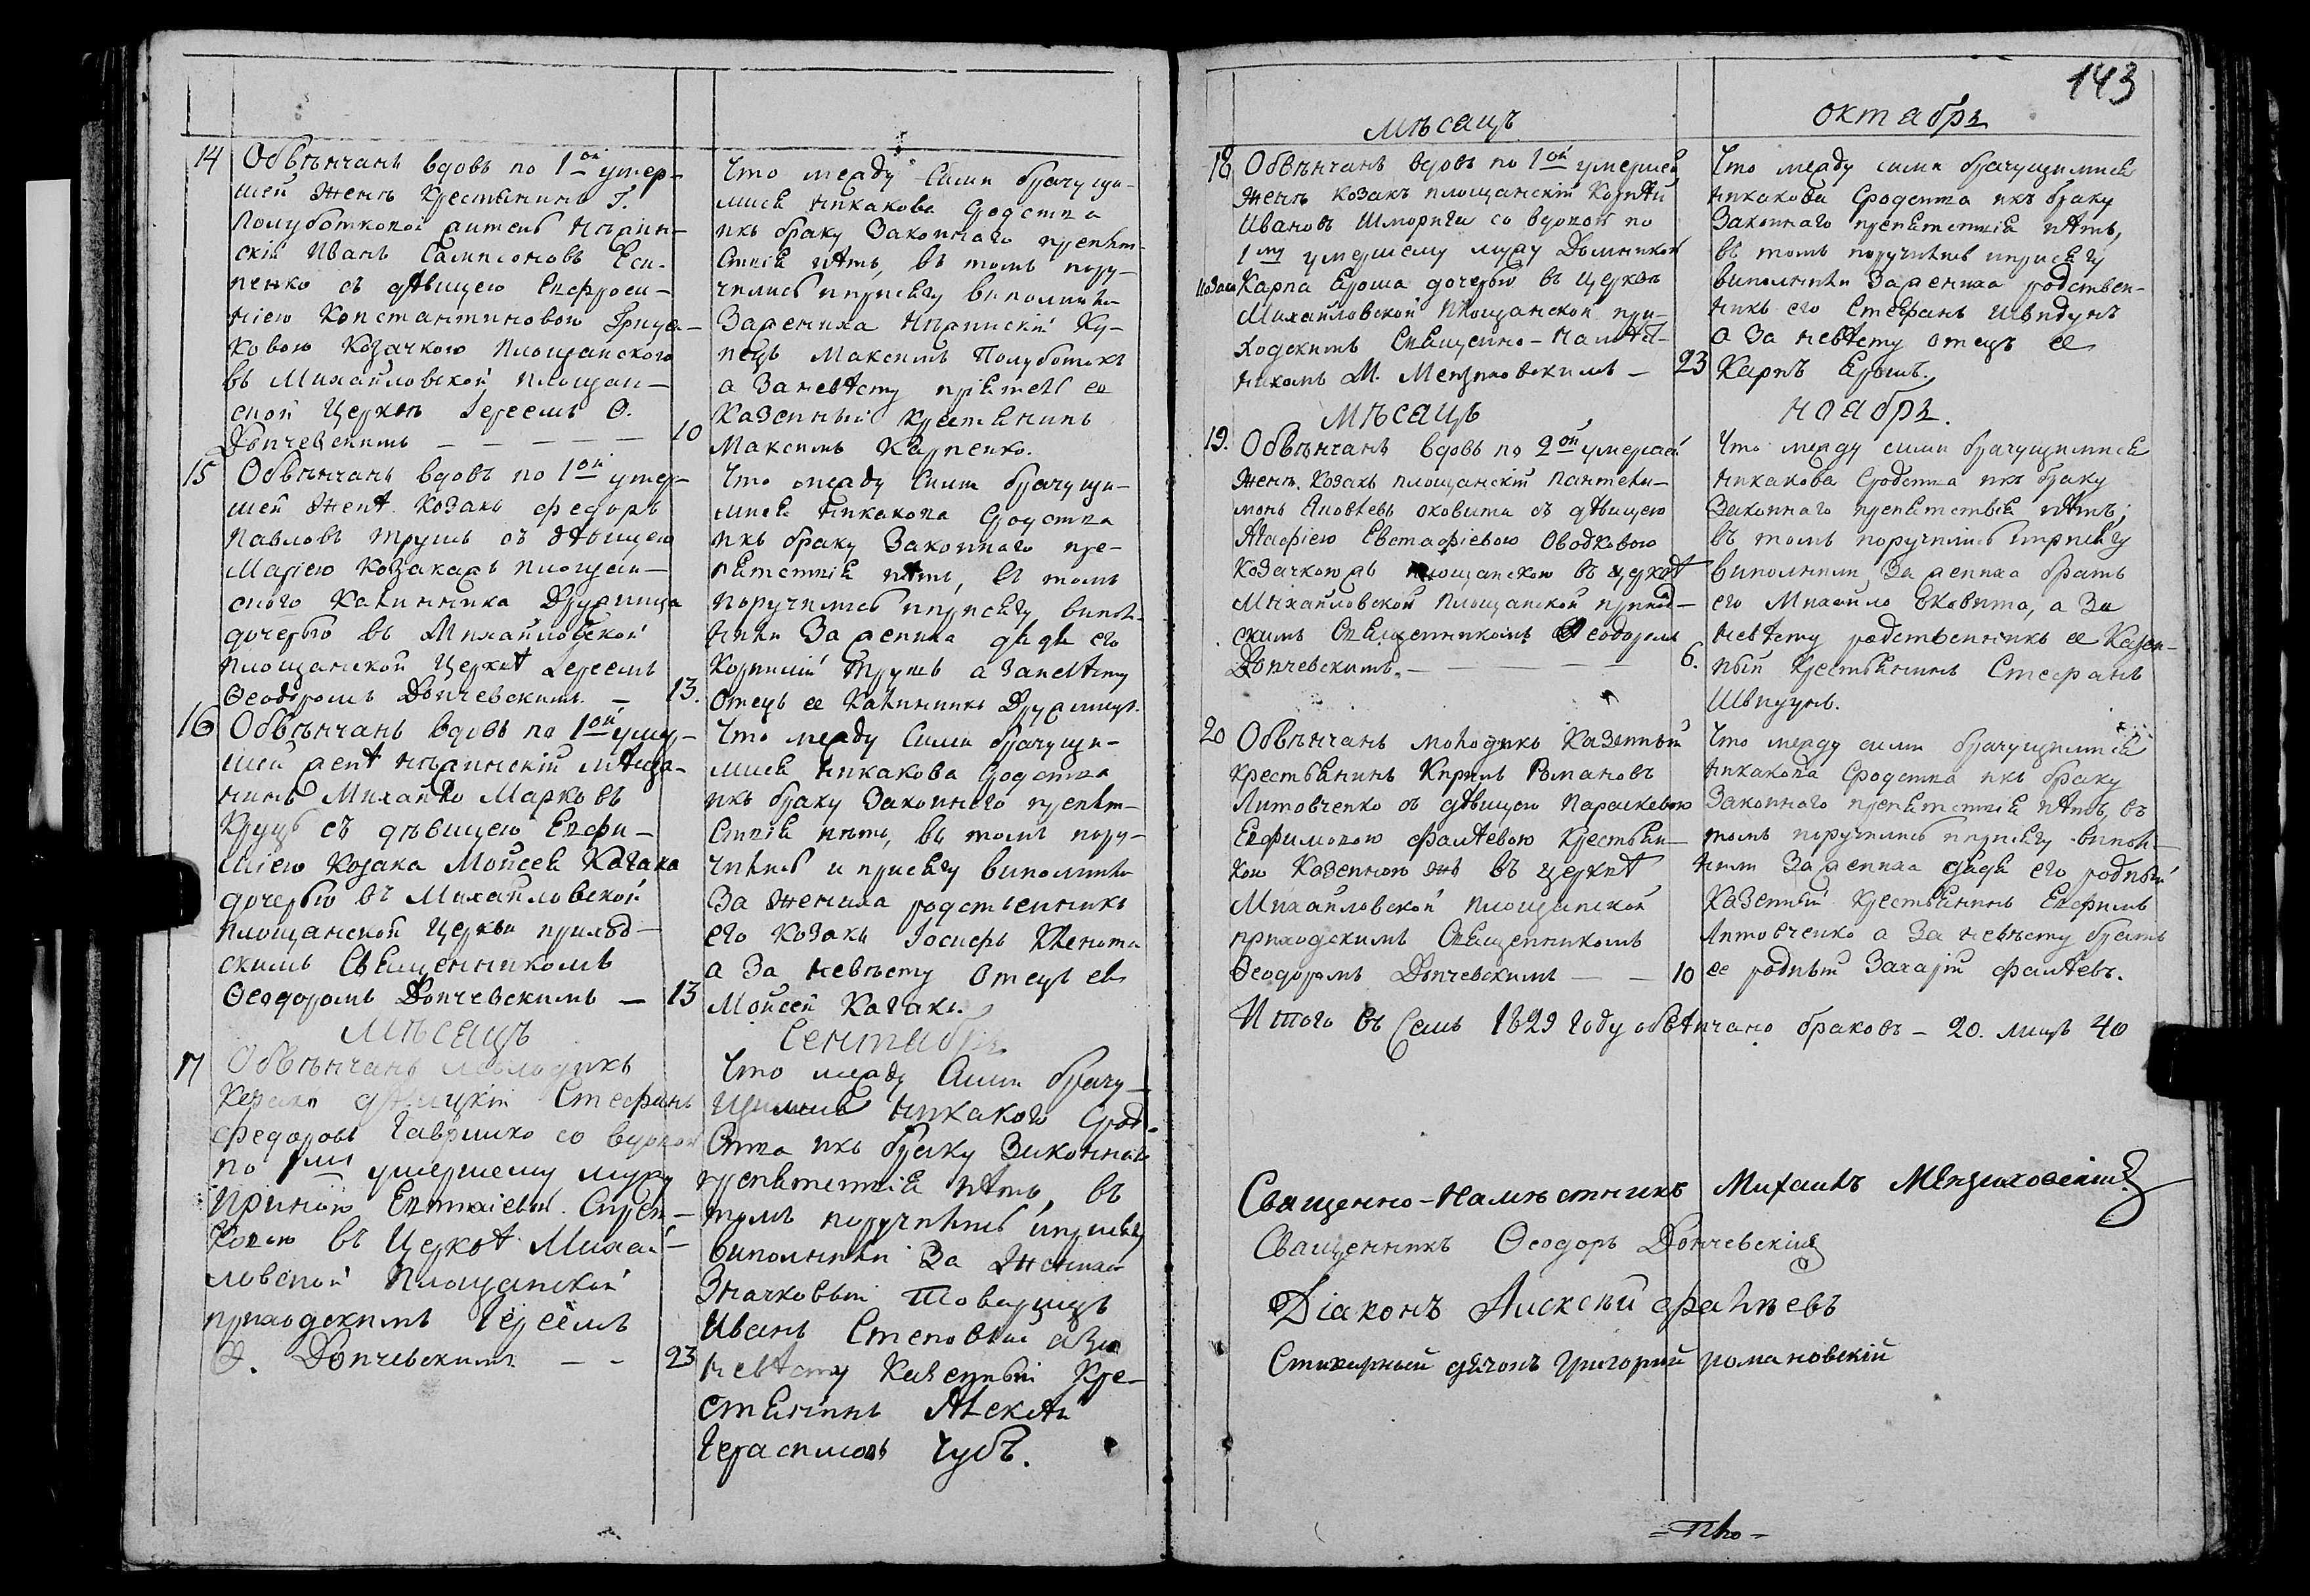 14 Обвѣнчанъ вдовъ по 1ой умер-
шей женѣ Крестьянинъ Г.
Полуботковой житель нѣжин-
скій Иванъ Сампсоновъ Еси-
пенко съ дѣвицею Евфроси-
ніею Константиновою
ковою Козачкою Площанского
въ Михайловской площан-
ской Церкви Іереемъ Ѳ.
Дончевскимъ — — — — — 10
Что между сими брачущи-
мися никакова сродства
икъ браку Законнаго препят-
ствія нѣтъ, въ томъ пору-
чились иприсягу виполнили
Зажениха нѣжинскій Ку-
пецъ Максимъ Полуботокъ
а Заневѣсту приятель ее
Казенный Крестянинъ
Максимъ Карпенко.
15 Обвѣнчанъ вдовъ по 1ой умер-
шей женѣ Козакъ Федоръ
Павловъ Трушъ съ дѣвицею
Маріею Козака жъ площан-
ского Калинника
дочерью въ Михайловской
площанской Церквѣ Іереемъ
Ѳеодоромъ Дончевскимъ. — 13.
Что между Сими брачущи-
мися никакова сродства
икъ браку Законного пре-
пятствія нѣтъ, въ томъ
поручились иприсягу випол-
нили За жениха дядя его
Корнилій Трушъ а Заневѣсту
Отецъ ее Калинникъ
16 Обвѣнчанъ вдовъ по 1ой умер-
шей женѣ нѣжинскій мѣща-
нинъ Михайло Марковъ
Куцъ съ дѣвицею Евфи-
міею Козака Мойсея Качака
дочерью въ Михайловской
площанской Церкви приход-
скимъ Священникомъ
Ѳеодоромъ Дончевскимъ — 13
Что между Сими брачущи-
мися никакова сродства
икъ браку Законнаго препят-
ствія нѣтъ, въ томъ пору-
чились и присягу виполнили
За жениха родственникъ
его Козакъ Іосифъ
а За невѣсту Отецъ ея
Мойсей Качакъ.
Мѣсацъ Сентабръ
17 Обвѣнчанъ молодикъ
Козакъ дѣвицкій Стефанъ
Федоровъ Гавришко со вдовой
по 1му умершему мужу
Ириною
въ Церквѣ Михай-
ловской Площанской
приходскимъ Іереемъ
Ѳ. Дончевскимъ — — 23
Что между Сими брачу-
щимися никакого срод-
ства икъ браку Законнаго
препятствія нѣтъ, въ
томъ поручились иприсягу
виполнили За жениха
Значковый Товарищъ
Иванъ Степовый аЗа
невѣсту Казенный Кре-
стянинъ Алексѣй
Герасимовъ Чубъ.
143
Мѣсацъ Октабръ
18 Обвѣнчанъ вдовъ по 1ой умершей
женѣ Козакъ площанскій Корнѣй
Ивановъ Шморига со вдовой по
1му умершему мужу
Козака Карпа Ероша дочерью въ Церкви
Михайловской Площанской при-
ходскимъ Священно-Намѣст-
никомъ М. Мензиховскимъ — 23
Что между сими брачущимися
никакова Сродства икъ браку
Законнаго препятствія нѣтъ,
въ томъ поручились иприсягу
виполнили Зажениха родствен-
никъ его Стефанъ Швидунъ
а За невѣсту отецъ ее
Карпъ Ерошъ.
Мѣсацъ Ноабръ.
19. Обвѣнчанъ вдовъ по 2ой умершей
женѣ. Козакъ площанскій Пантели-
монъ Яковлевъ Оковита съ дѣвицею
Агафіею Евстафіевою Оводковою
Козачкою жъ площанскою въ церквѣ
Михайловской Площанской приход-
скимъ Священникомъ Ѳеодоромъ
Дончевскимъ. — — — — 6.
Что между сими брачущимися
никакова Сродства икъ браку
Законнаго препятствія нѣтъ;
въ томъ поручились иприсягу
виполнили, За жениха братъ
его Михайло Оковита, а За
невѣсту родственникъ ее Казен-
ный Крестьянинъ Стефанъ
Швидунъ.
20 Обвѣнчанъ молодикъ Казенный
крестьянинъ Кирилъ Романовъ
Литовченко съ дѣвицею Параскевою
Евфимовою Фалѣевою Крестьян-
кою Казенною жъ въ церквѣ
Михайловской площанской
приходскимъ Священникомъ
Ѳеодоромъ Дончевскимъ — — 10
Что между сими брачущимися
никакова Сродства икъ браку
Законнаго препятствія нѣтъ, въ
томъ поручились иприсягу випол-
нили За жениха дядя его родный
Казенный Крестьянинъ Евфимъ
Литовченко а За невѣсту братъ
ее родный Захарій Фалѣевъ.
Итого въ Семъ 1829 году обвѣнчано браковъ — 20. лицъ 40
Священно-Намѣстникъ Михаилъ Мензиховскій
Священникъ Ѳеодоръ Дончевскій
Діаконъ Алексѣй Фалѣевъ
Стихарный дячокъ Григорий Романовскій